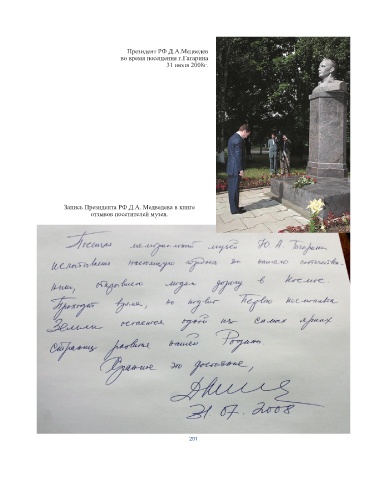 Президент РФ Д.А.Медведев
во время посещения г.Гагарина
31 июля 2008г.
Запись Президента РФ Д.А. Медведева в книге
отзывов посетителей музея.
Посетил мемориальный музей Ю. А. Гагарина
испытываешь настоящую гордость за нашего соотечественника,
открывшего людям дорогу в Космос.
Проходит время, но подвиг Первого космонавта
Земли остается одной из самых ярких
страниц развития нашей Родины
Храните это достояние,
31.07.2008
201